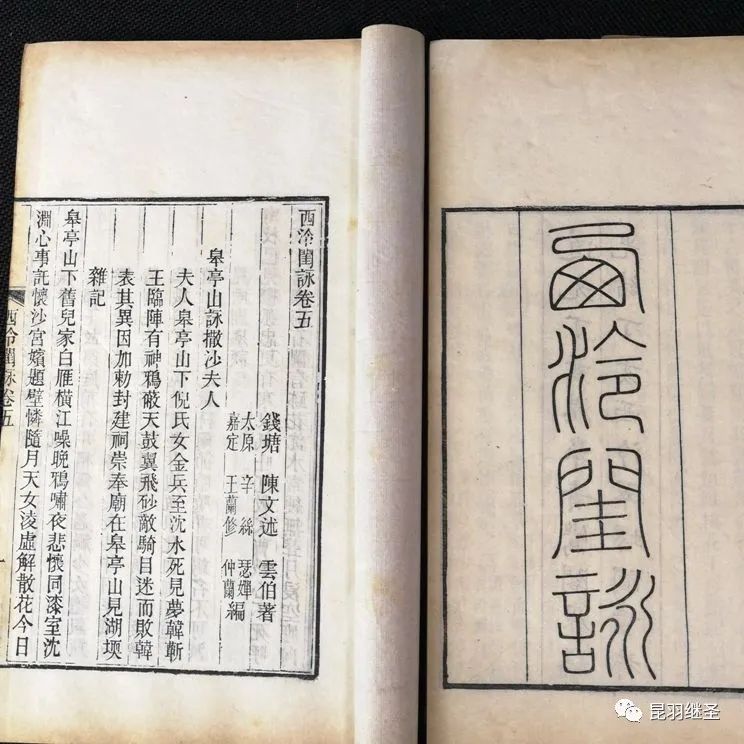 西泠閨詠
西泠閨詠卷五
錢塘 陳文述 雲伯著
太原 辛絲 瑟嬋
嘉定 王蘭修 仲蘭 編
皋亭山詠撒沙夫人
夫人皋亭山下倪氏女金兵至沈水死見夢韓蘄
王臨陣有神鴉蔽天鼓翼飛砂敵騎目迷而敗韓
表其異因加勅封建祠崇奉廟在皋亭山見湖堧
雜記
皋亭山下舊兒家白雁橫江噪晚鴉嘯夜悲懷同漆室沈
淵心事託懷沙宮嬪題壁憐隨月天女淩虛解散花今日
西泠閨詠卷五
一
昆羽继圣